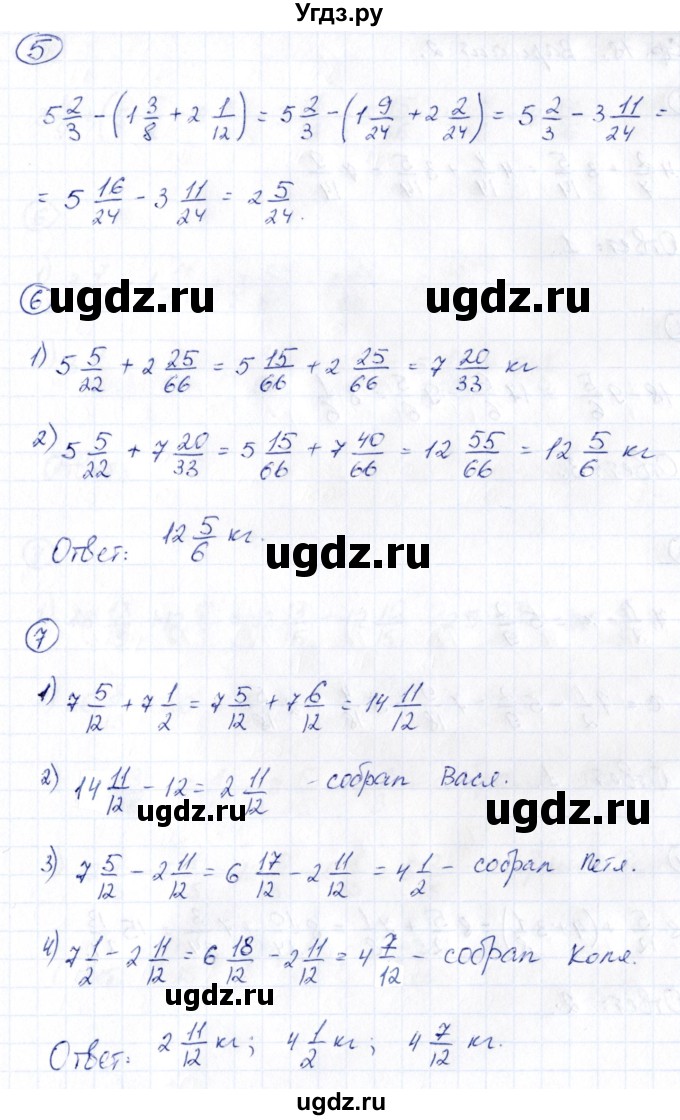 Угдз.ру
5
5 2/3 − (1 3/8 + 2 1/12) = 5 2/3 − (1 9/24 + 2 2/24) = 5 2/3 − 3 11/24 =
= 5 16/24 − 3 11/24 = 2 5/24.
6
ugdz.ru ugdz.ru
1) 5 5/22 + 2 25/66 = 5 15/66 + 2 25/66 = 7 20/33 кг
2) 5 5/22 + 7 20/33 = 5 15/66 + 7 40/66 = 12 55/66 = 12 5/6 кг
Ответ: 12 5/6 кг.
ugdz.ru
7
1) 7 5/12 + 7 1/2 = 7 5/12 + 7 6/12 = 14 11/12
2) 14 11/12 − 12 = 2 11/12 – собрал Вася.
ugdz.ru ugdz.ru
3) 7 5/12 − 2 11/12 = 6 17/12 − 2 11/12 = 4 1/2 – собрал Петя.
4) 7 1/2 − 2 11/12 = 6 18/12 − 2 11/12 = 4 7/12 – собрал Коля.
ugdz.ru
Ответ: 2 11/12 кг; 4 1/2 кг; 4 7/12 кг.
ugdz.ru